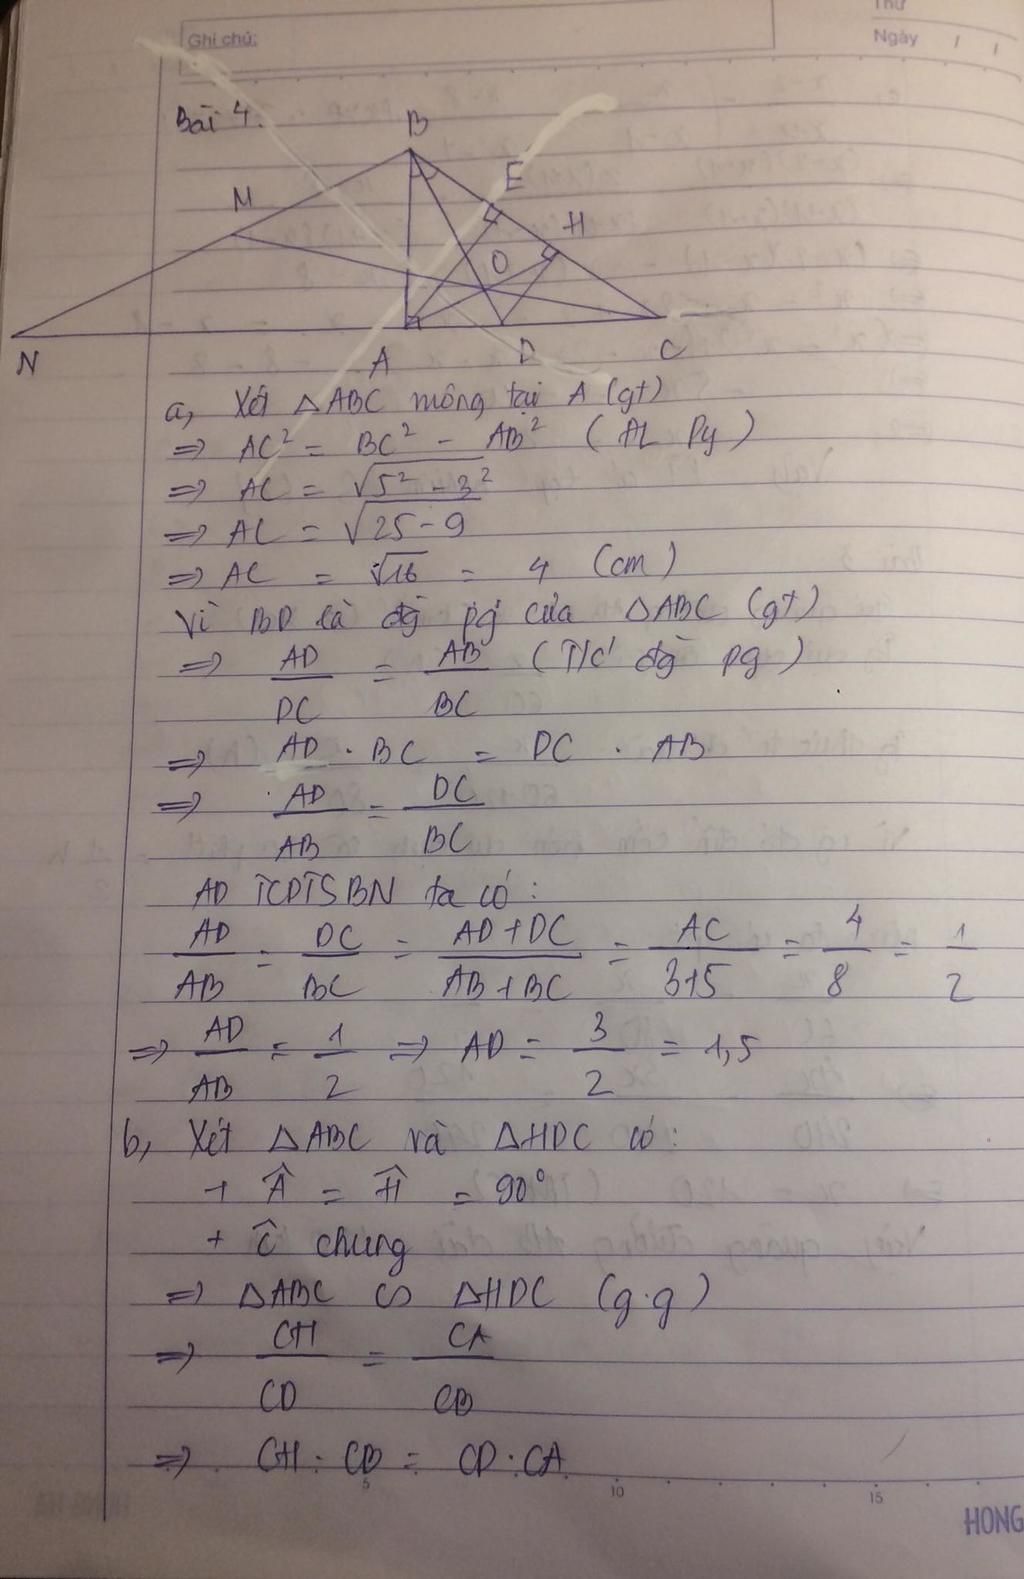 Thứ
Ghi chú:
Ngày / /
Bài 4.
B
E
M
H
O
N
A
D
C
a, Xét △ABC mông tại A (gt)
=> AC² = BC² - AB² (ĐL Py)
=> AC = √5² - 3²
=> AC = √25 - 9
=> AC = √16 = 4 (cm)
Vì BD là đg pg của △ABC (gt)
=> AD/DC = AB/BC (T/c' đg pg)
=> AD . BC = DC . AB
=> AD/AB = DC/BC
AD TCDTSBN ta có:
AD/AB = DC/BC = AD+DC/AB+BC = AC/3+5 = 4/8 = 1/2
=> AD/AB = 1/2 => AD = 3/2 = 1,5
b, Xét △ABC và △HDC có:
+ Â = Ĥ = 90°
+ Ĉ chung
=> △ABC ∽ △HDC (g.g)
=> CH/CD = CA/CB
=> CH . CB = CD . CA
5 10 15
HONG